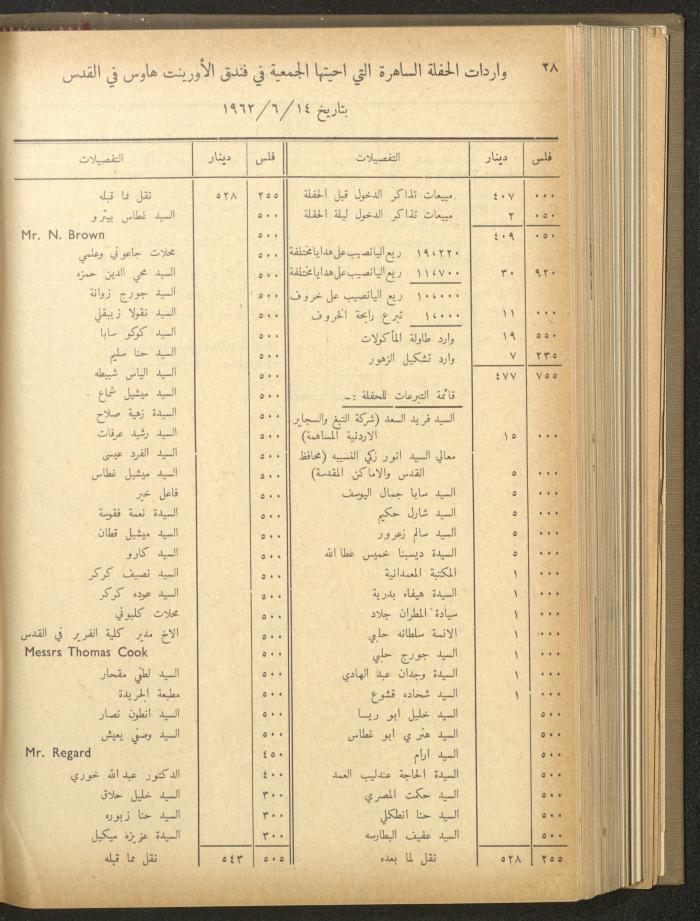 ٢٨
واردات الحفلة الساهرة التي احيتها الجمعية في فندق الأورينت هاوس في القدس
بتاريخ ١٤ / ٦ / ١٩٦٢
فلس دينار التفصيلات
٠٠٠ ٤٠٧ مبيعات تذاكر الدخول قبل الحفلة
٠٥٠ ٢ مبيعات تذاكر الدخول ليلة الحفلة
٠٥٠ ٤٠٩
١٩،٢٢٠ ريع اليانصيب على هدايا مختلفة
٩٢٠ ٣٠ ١١،٧٠٠ ريع اليانصيب على هدايا مختلفة
١٠،٠٠٠ ريع اليانصيب على خروف
٠٠٠ ١١ ١،٠٠٠ تبرع رابحة الخروف
٥٥٠ ١٩ وارد طاولة المأكولات
٢٣٥ ٧ وارد تشكيل الزهور
٧٥٥ ٤٧٧
قائمة التبرعات للحفلة :ـ
السيد فريد السعد (شركة التبغ والسجاير
٠٠٠ ١٥ الاردنية المساهمة)
معالي السيد انور زكي النسيبه (محافظ
٠٠٠ ٥ القدس والاماكن المقدسة)
٠٠٠ ٥ السيد سابا جمال اليوسف
٠٠٠ ٥ السيد شارل حكيم
٠٠٠ ٥ السيد سالم زعرور
٠٠٠ ٥ السيدة ديسبنا خميس عطا الله
٠٠٠ ١ المكتبة المعمدانية
٠٠٠ ١ السيدة هيفاء بدرية
٠٠٠ ١ سيادة المطران جلاد
٠٠٠ ١ الانسة سلطانه حلبي
٠٠٠ ١ السيد جورج حلبي
٠٠٠ ١ السيدة وجدان عبد الهادي
٠٠٠ ١ السيد شحاده قشوع
٥٠٠ السيد خليل ابو ريا
٥٠٠ السيد هنري ابو غطاس
٥٠٠ السيد ارام
٥٠٠ السيدة الحاجة عندليب العمد
٥٠٠ السيد حكمت المصري
٥٠٠ السيد حنا انطكلي
٥٠٠ السيد عفيف البطارسه
٢٥٥ ٥٢٨ نقل لما بعده
فلس دينار التفصيلات
٢٥٥ ٥٢٨ نقل مما قبله
٥٠٠ السيد غطاس بيترو
٥٠٠ Mr. N. Brown
٥٠٠ محلات جاعوني وعلمي
٥٠٠ السيد محي الدين حمزه
٥٠٠ السيد جورج زوانة
٥٠٠ السيد نقولا زيبقلي
٥٠٠ السيد كوكو سابا
٥٠٠ السيد حنا سليم
٥٠٠ السيد الياس شبيطه
٥٠٠ السيد ميشيل شماع
٥٠٠ السيدة زهية صلاح
٥٠٠ السيد رشيد عرفات
٥٠٠ السيد الفرد عيسى
٥٠٠ السيد ميشيل غطاس
٥٠٠ فاعل خير
٥٠٠ السيدة نعمة فقوسة
٥٠٠ السيد ميشيل قطان
٥٠٠ السيد كارو
٥٠٠ السيد نصيف كركر
٥٠٠ السيد عوده كركر
٥٠٠ محلات كلبوني
٥٠٠ الاخ مدير كلية الفرير في القدس
٥٠٠ Messrs Thomas Cook
٥٠٠ السيد لطفي مقحار
٥٠٠ مطبعة الجريدة
٥٠٠ السيد انطون نصار
٥٠٠ السيد وصفي يعيش
٤٥٠ Mr. Regard
٤٠٠ الدكتور عبد الله خوري
٣٠٠ السيد خليل حلاق
٣٠٠ السيد حنا زبوره
٣٠٠ السيدة عزيزه ميكيل
٥٠٥ ٥٤٣ نقل مما قبله